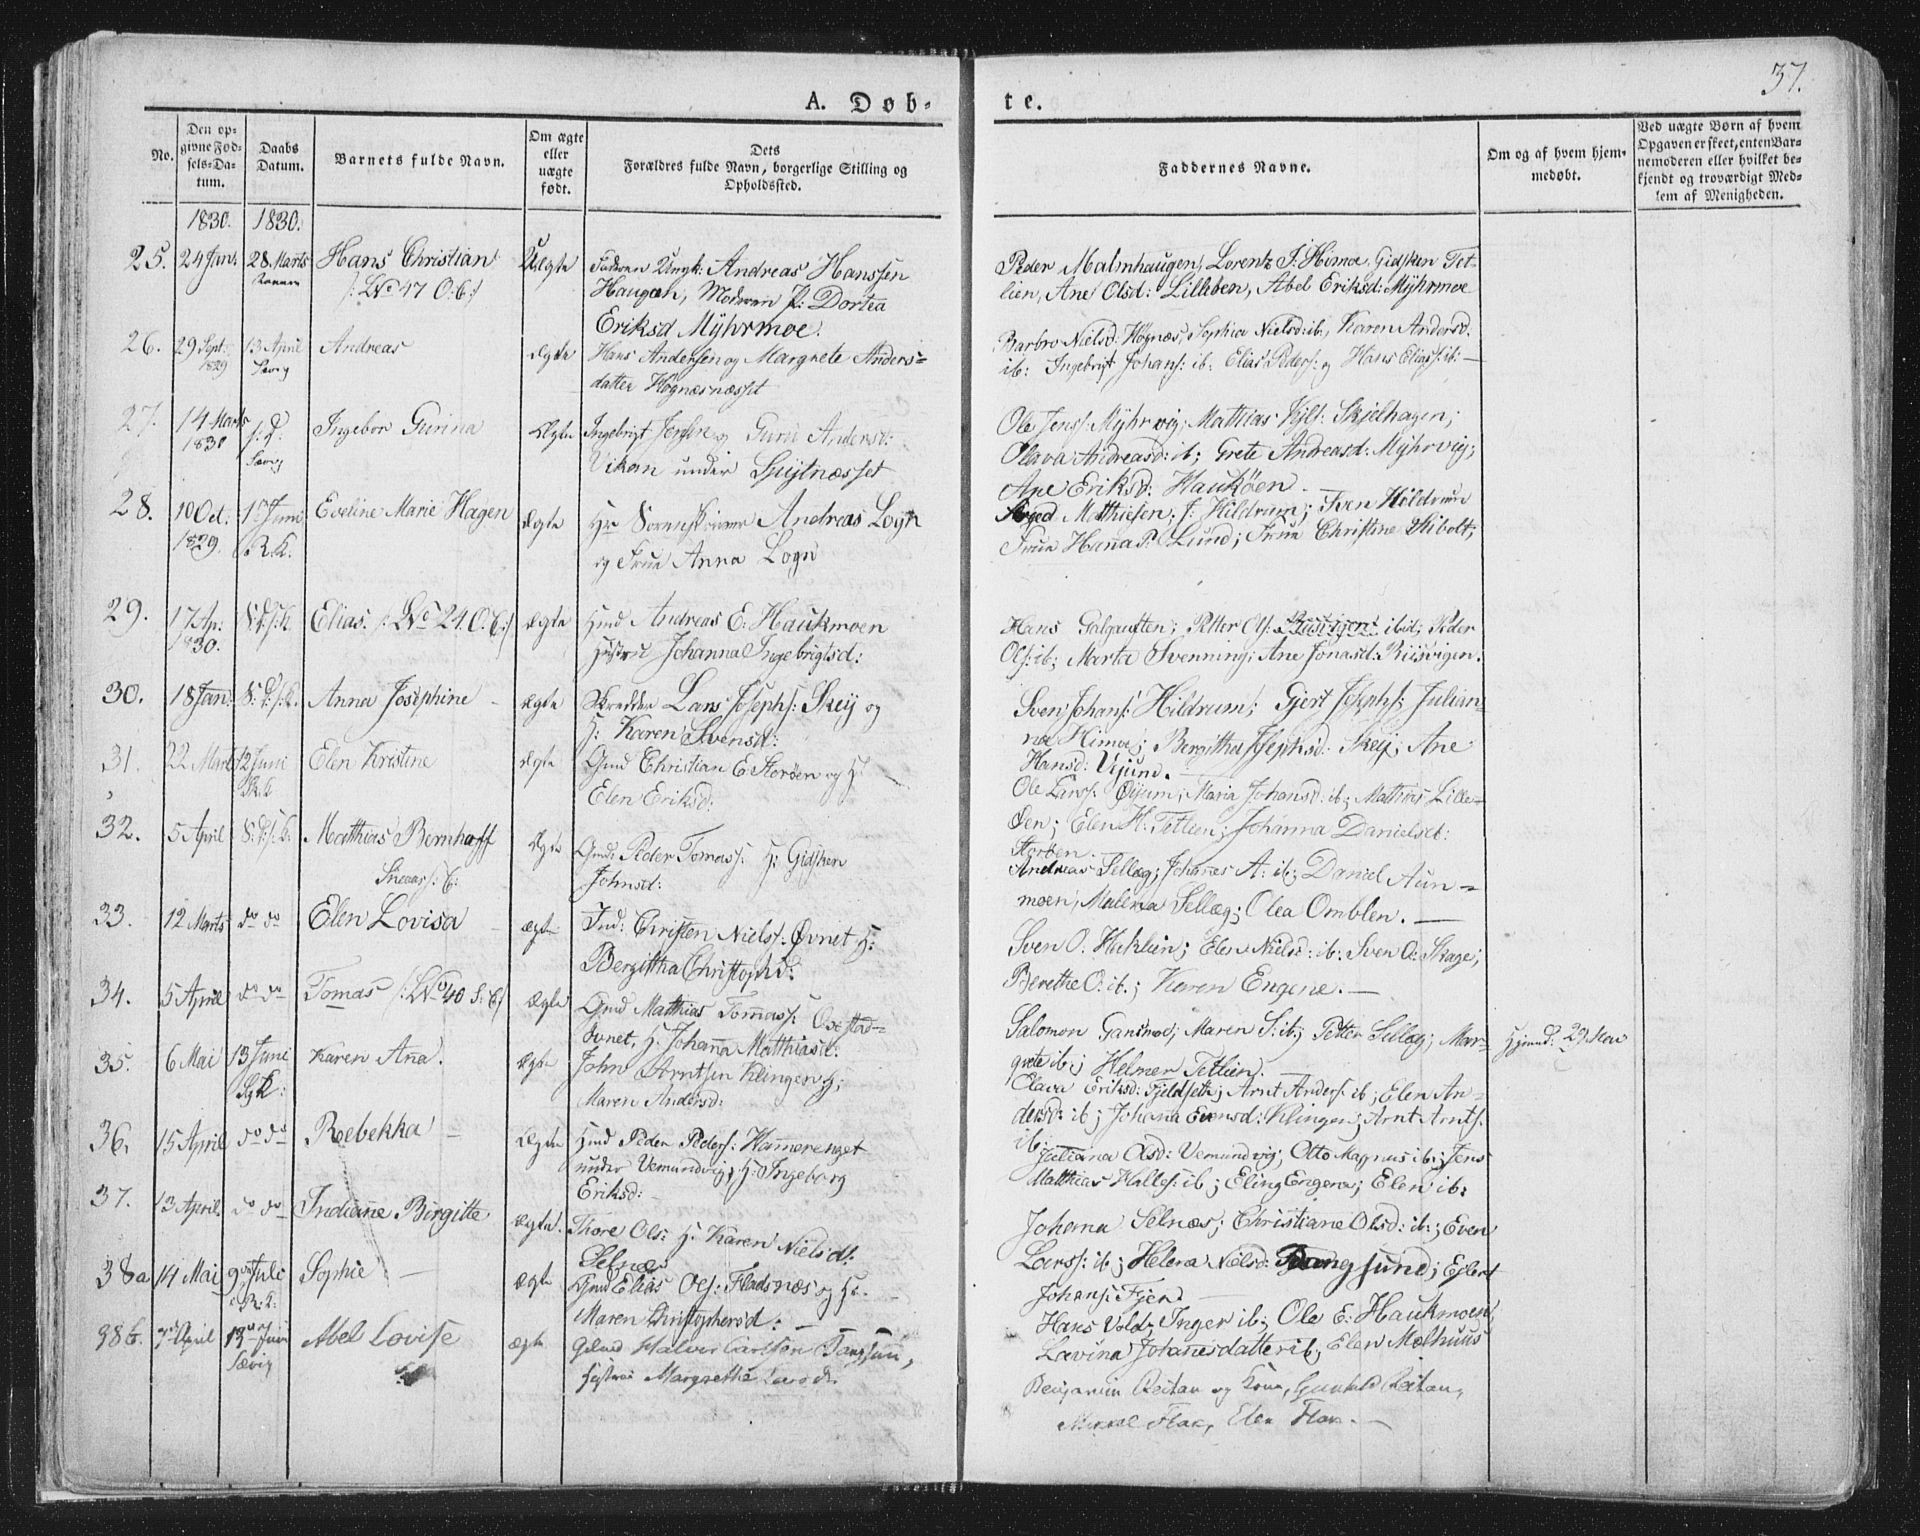 37.
A. Døb-
te.
No.
Den op-
givne Fød-
sels-Da-
tum.
Daabs
Datum.
Barnets fulde Navn.
Om ægte
eller
uægte
født.
Dets
Forældres fulde Navn, borgerlige Stilling og
Opholdsted.
Faddernes Navne.
Om og af hvem hjem-
medøbt.
Ved uægte Børn af hvem
Opgaven er skeet, enten Bar-
nemoderen eller hvilket be-
kjendt og troværdigt Med-
lem af Menigheden.
1830. 1830.
25. 24 Jan. 28 Marts Hans Christian Uægte Faderen Ungk: Andreas Hanssen
/: No 47 O: C:/ Haugan, Moderen P: Dortea
Eriksd Mÿhrmoe.
Peder Malmhaugen, Lorentz J: Himoe, Gidsken Tet-
lien, Ane Olsd: Lilleøen, Abel Eriksd: Mÿhrmoe
26. 29 Sept: 13 April Andreas ægte Hans Andersen og Margrete Anders-
1829 Sævig datter Høgnæsnæsset
Barbro Nielsd: Høgnæs, Sophia Nielsd: ib, Karen Andersd.
ib: Ingebrigt Johans: ib: Elias Peders: og Hans Elias: ib: —
27. 14 Marts s: d: Ingebor Gurina Ægte Ingebrigt og Guru Andersd:
1830 Sævig Vikan under Spiltnæsset
Ole Jens: Mÿhrvig; Mathias Kjl: Skjelhagen;
Olava Andreasd: ib; Grete Andreasd: Mÿhrvig;
Ane Eriksd: Haukøen.
28. 10 Oct. 1 Juni Eveline Marie Hagen Ægte Hr Sorenskriver Andreas Logn
1829. R. K. og Frue Anna Logn
Matthiesen; J: Hildrum; Sven Hildrum
Frue Hanna P: Lund; Frue Christine Hibolt;
29. 17 Ap. S: d: s: K. Elias. /: No 24. O. C:/ ægte Huusmd Andreas E: Haukmoen
1830. Hustrue Johanna Ingebrigtsd:
Hans Galgausten; Petter Ols: Riisvigen ibid; Peder
Ols: ib; Marta Svenning; Ane Jonasd: Riisvigen.
30. 18 Jan: S: d: s: K. Anna Josephine ægte Skredder Lars Josephs: Skeij og
H: Karen Svensd:
Sven Johans: Hildrum; Gjert Josephs; Julian-
na Himo; Bergitha Josephsd: Skeij; Ane
Hansd: Vejund.
31. 22 Marts 12 Juni Elen Kristine ægte Gmd Christian E Storøen og H:
R. K. Elen Eriksd:
Ole Lars: Øijum; Maria Johansd: ib; Mathias Lille-
Øen; Elen H: Tetlien; Johanna Danielsd:
Storøen.
32. 5 April S: d: s: K. Matthias Bernhoff Ægte Gmd: Peder Tomas: H: Gidsken
Johnsd:
Andreas Sellæg; Johanes A: ib; Daniel Aun-
moen; Malena Sellæg; Olea Omblen. —
33. 12 Marts do do Elen Lovisa ægte Ind: Christen Niels: Øvnet H:
Bergittha Christophd:
Sven O. Heklien; Elen Nielsd: ib: Sven O: Skage;
Berethe O: ib.; Karen Engene. —
34. 5 April do do Tomas /: No 40 S: C:/ Ægte Gmd Matthias Tomas: Ovestad-
Øvnet, H: Johana Matthiasd:
Salomon Gansmoe; Maren S: ib; Petter Sellæg; Mar-
grete ib; Helmer Tetlien.
Hjemd: 29 Mai
35. 6 Mai 13 Juni Karen Ana. Ægte John Arntsen Klingen H;
Maren Andersd:
Olava Eriksd: Fjeldseth; Arnt Anders: ib; Elen An-
dersd: ib; Johana Evensd: Klingen; Arnt Arnts:
ib.
36. 15 April do do Rebekka — Ægte Hmd Peder Peders: Hamerenget
under Vemundvig; H: Ingeborg
Eriksd: —
Juliana Olsd: Vemundvig; Otto Magnus ib; Jens
Matthias Halles: ib; Eling Engene; Elen ib:
37. 13 April do do Indiane Birgitte ægte Thore Ols: H: Karen Nielsd:
Selnæs
Johana Selnæs; Christiane Olsd: ib:; Even
Larss: ib; Helena Nielsd: Tangsund; Ejlert
Johans: Fjerd
38a 14 Mai 9de Juli Sophie — ægte Gmd Elias Ols: Fladsnæs og H:
R: K: Maren Christophersd: —
Hans Vold; Inger ib; Ole E: Haukmoen
Lavina Johanesdatter ib; Elen Melhuus
38b. April 13 Juni Abel Lovise ægte Halver Carlsen Tangsun,
Sævig Hustrue Margrethe Larsd.
Benjamin Reitan og Kone, Gunhild Reitan,
Mikkel Flak, Elen Flak. —